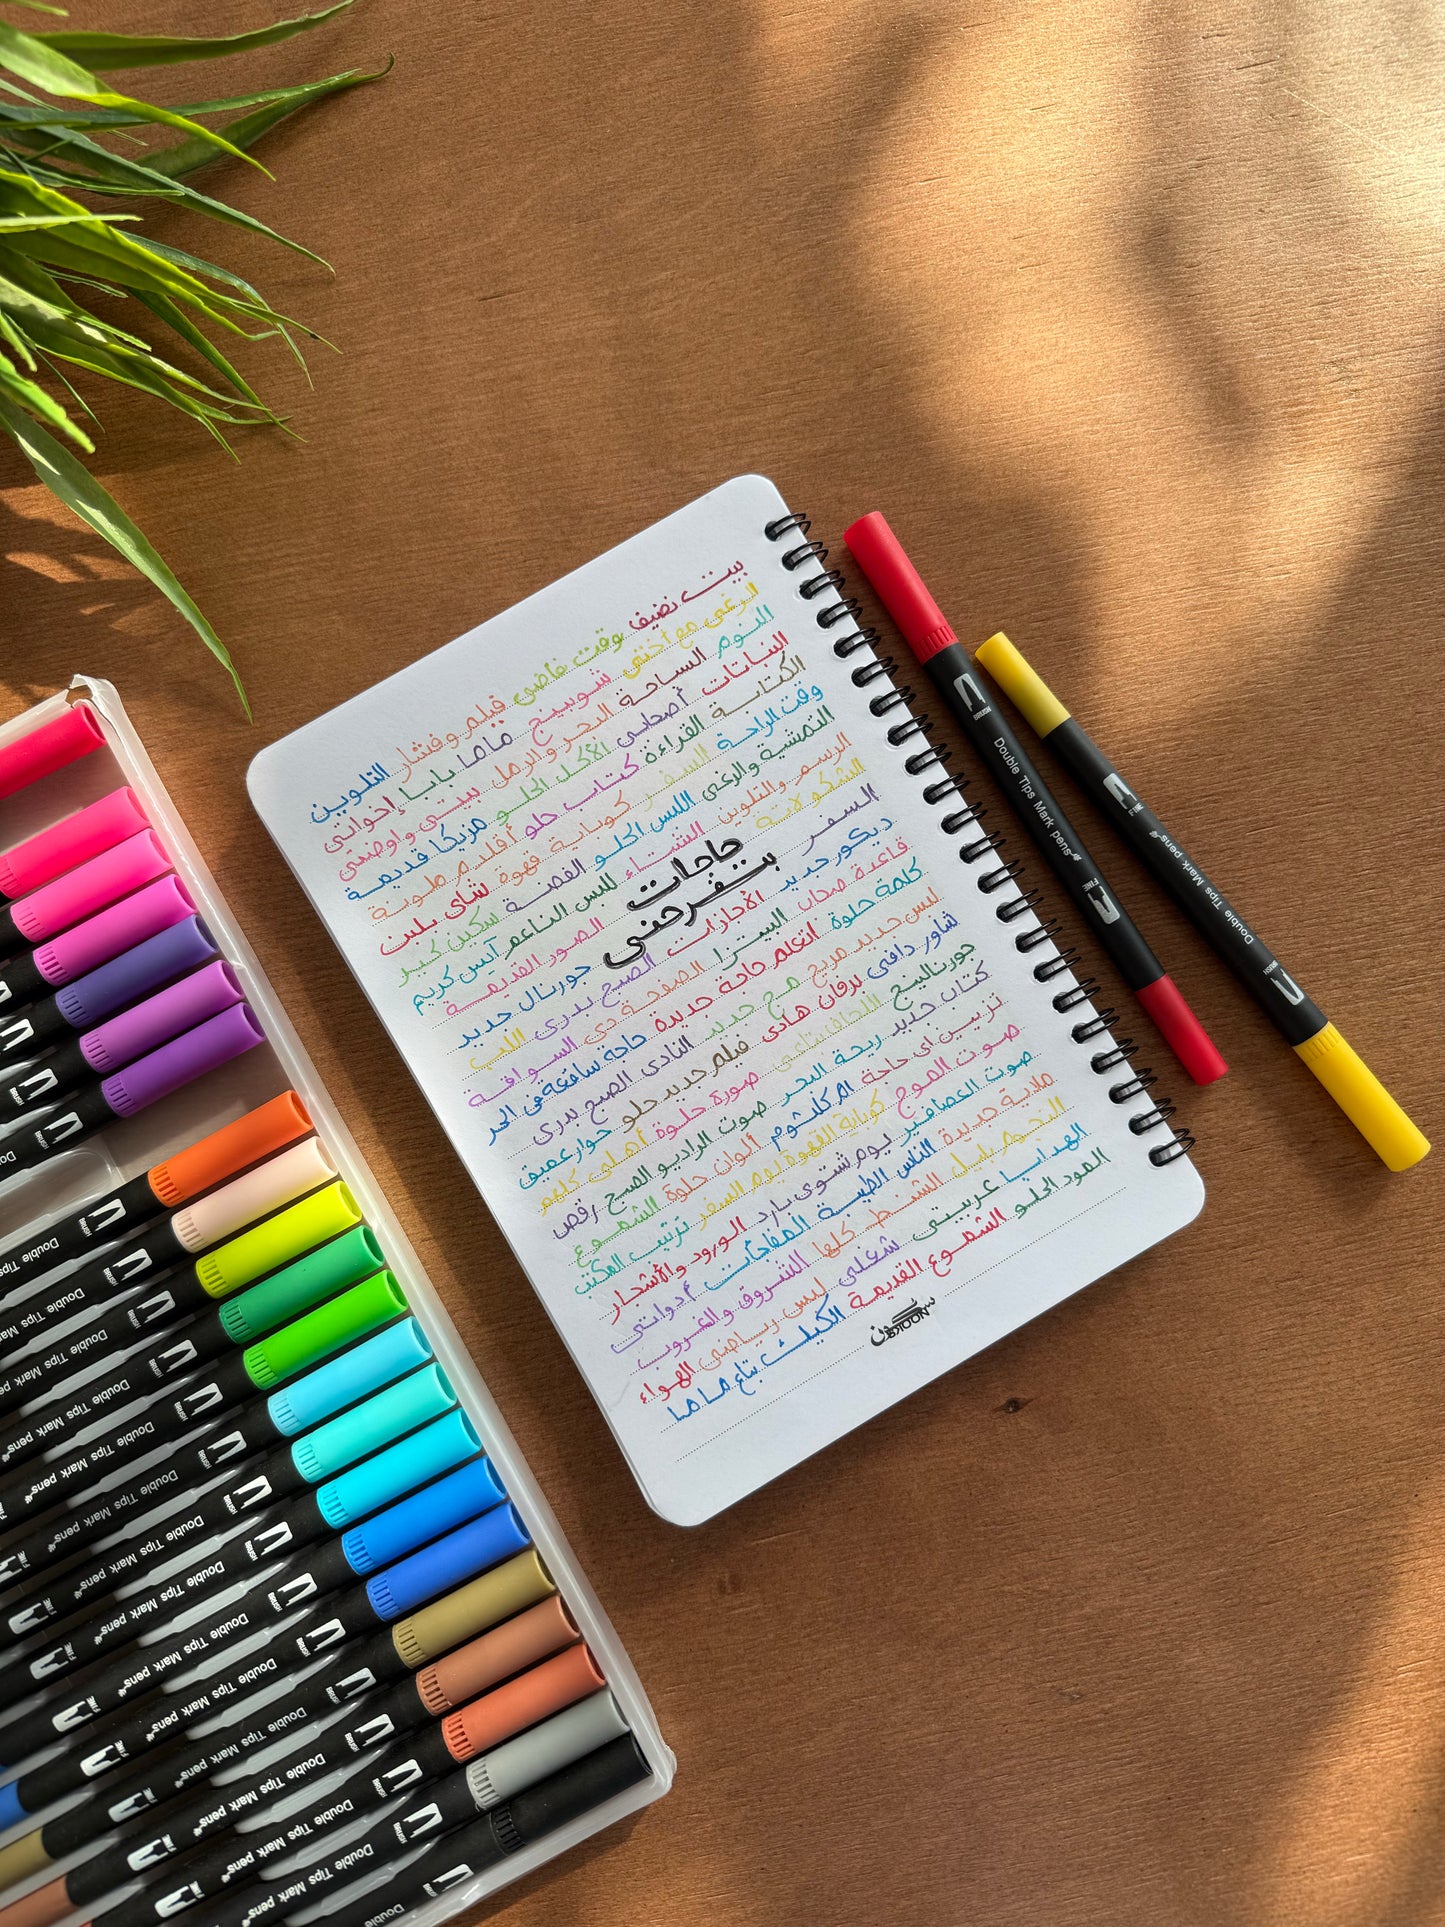 بيت نضيف وقت فاضي فيلم وفشار التلوين
الرغي مع أختي شوبينج ماما بابا إخواتي
النوم السباحة البحر والرمل بيتي واوضتي
النباتات أصحابي الأكل الحلو مزيكا قديمة
الكتابة القراءة كتاب حلو أقلام ملونة
وقت الراحة السفر كوباية قهوة شاي بلبن
التمشية والرغي اللبس الحلو الفضة سكينج كير
الرسم والتلوين الشتاء اللبس الناعم آيس كريم
الشكولاتة حاجات الصور القديمة
السفر بتفرحني جورنال جديد
ديكور جديد الأجازات الصبح بدري اللب
قاعدة صحاب البيتزا الصفحة دي السواقة
كلمة حلوة اتعلم حاجة جديدة حاجة ساقعة في الحر
لبس جديد مريح مج جديد النادي الصبح بدري
شاور دافي برفان هادي فيلم جديد حلو حوار عميق
جورنالينج اللحاف بتاعي صورة حلوة أهلي كلهم
كتاب جديد ريحة البحر صوت الراديو الصبح رقص
تزيين اي حاجة ام كلثوم ألوان حلوة الشموع
صوت الموج كوباية القهوة يوم السفر ترتيب المكتب
صوت العصافير يوم شتوي بارد الورود والأشجار
ملاية جديدة الناس الطيبة المفاجآت أدواتي
النجوم بليل الشنط كلها الشروق والغروب
الهدايا عربيتي شغلي لبس رياضي الهواء
المود الحلو الشموع القديمة الكيك بتاع ماما
BROON
Double Tips Mark pens
BRUSH
FINE
Double Tips Mark pens
BRUSH
FINE
Double Tips Mark pens
BRUSH
FINE